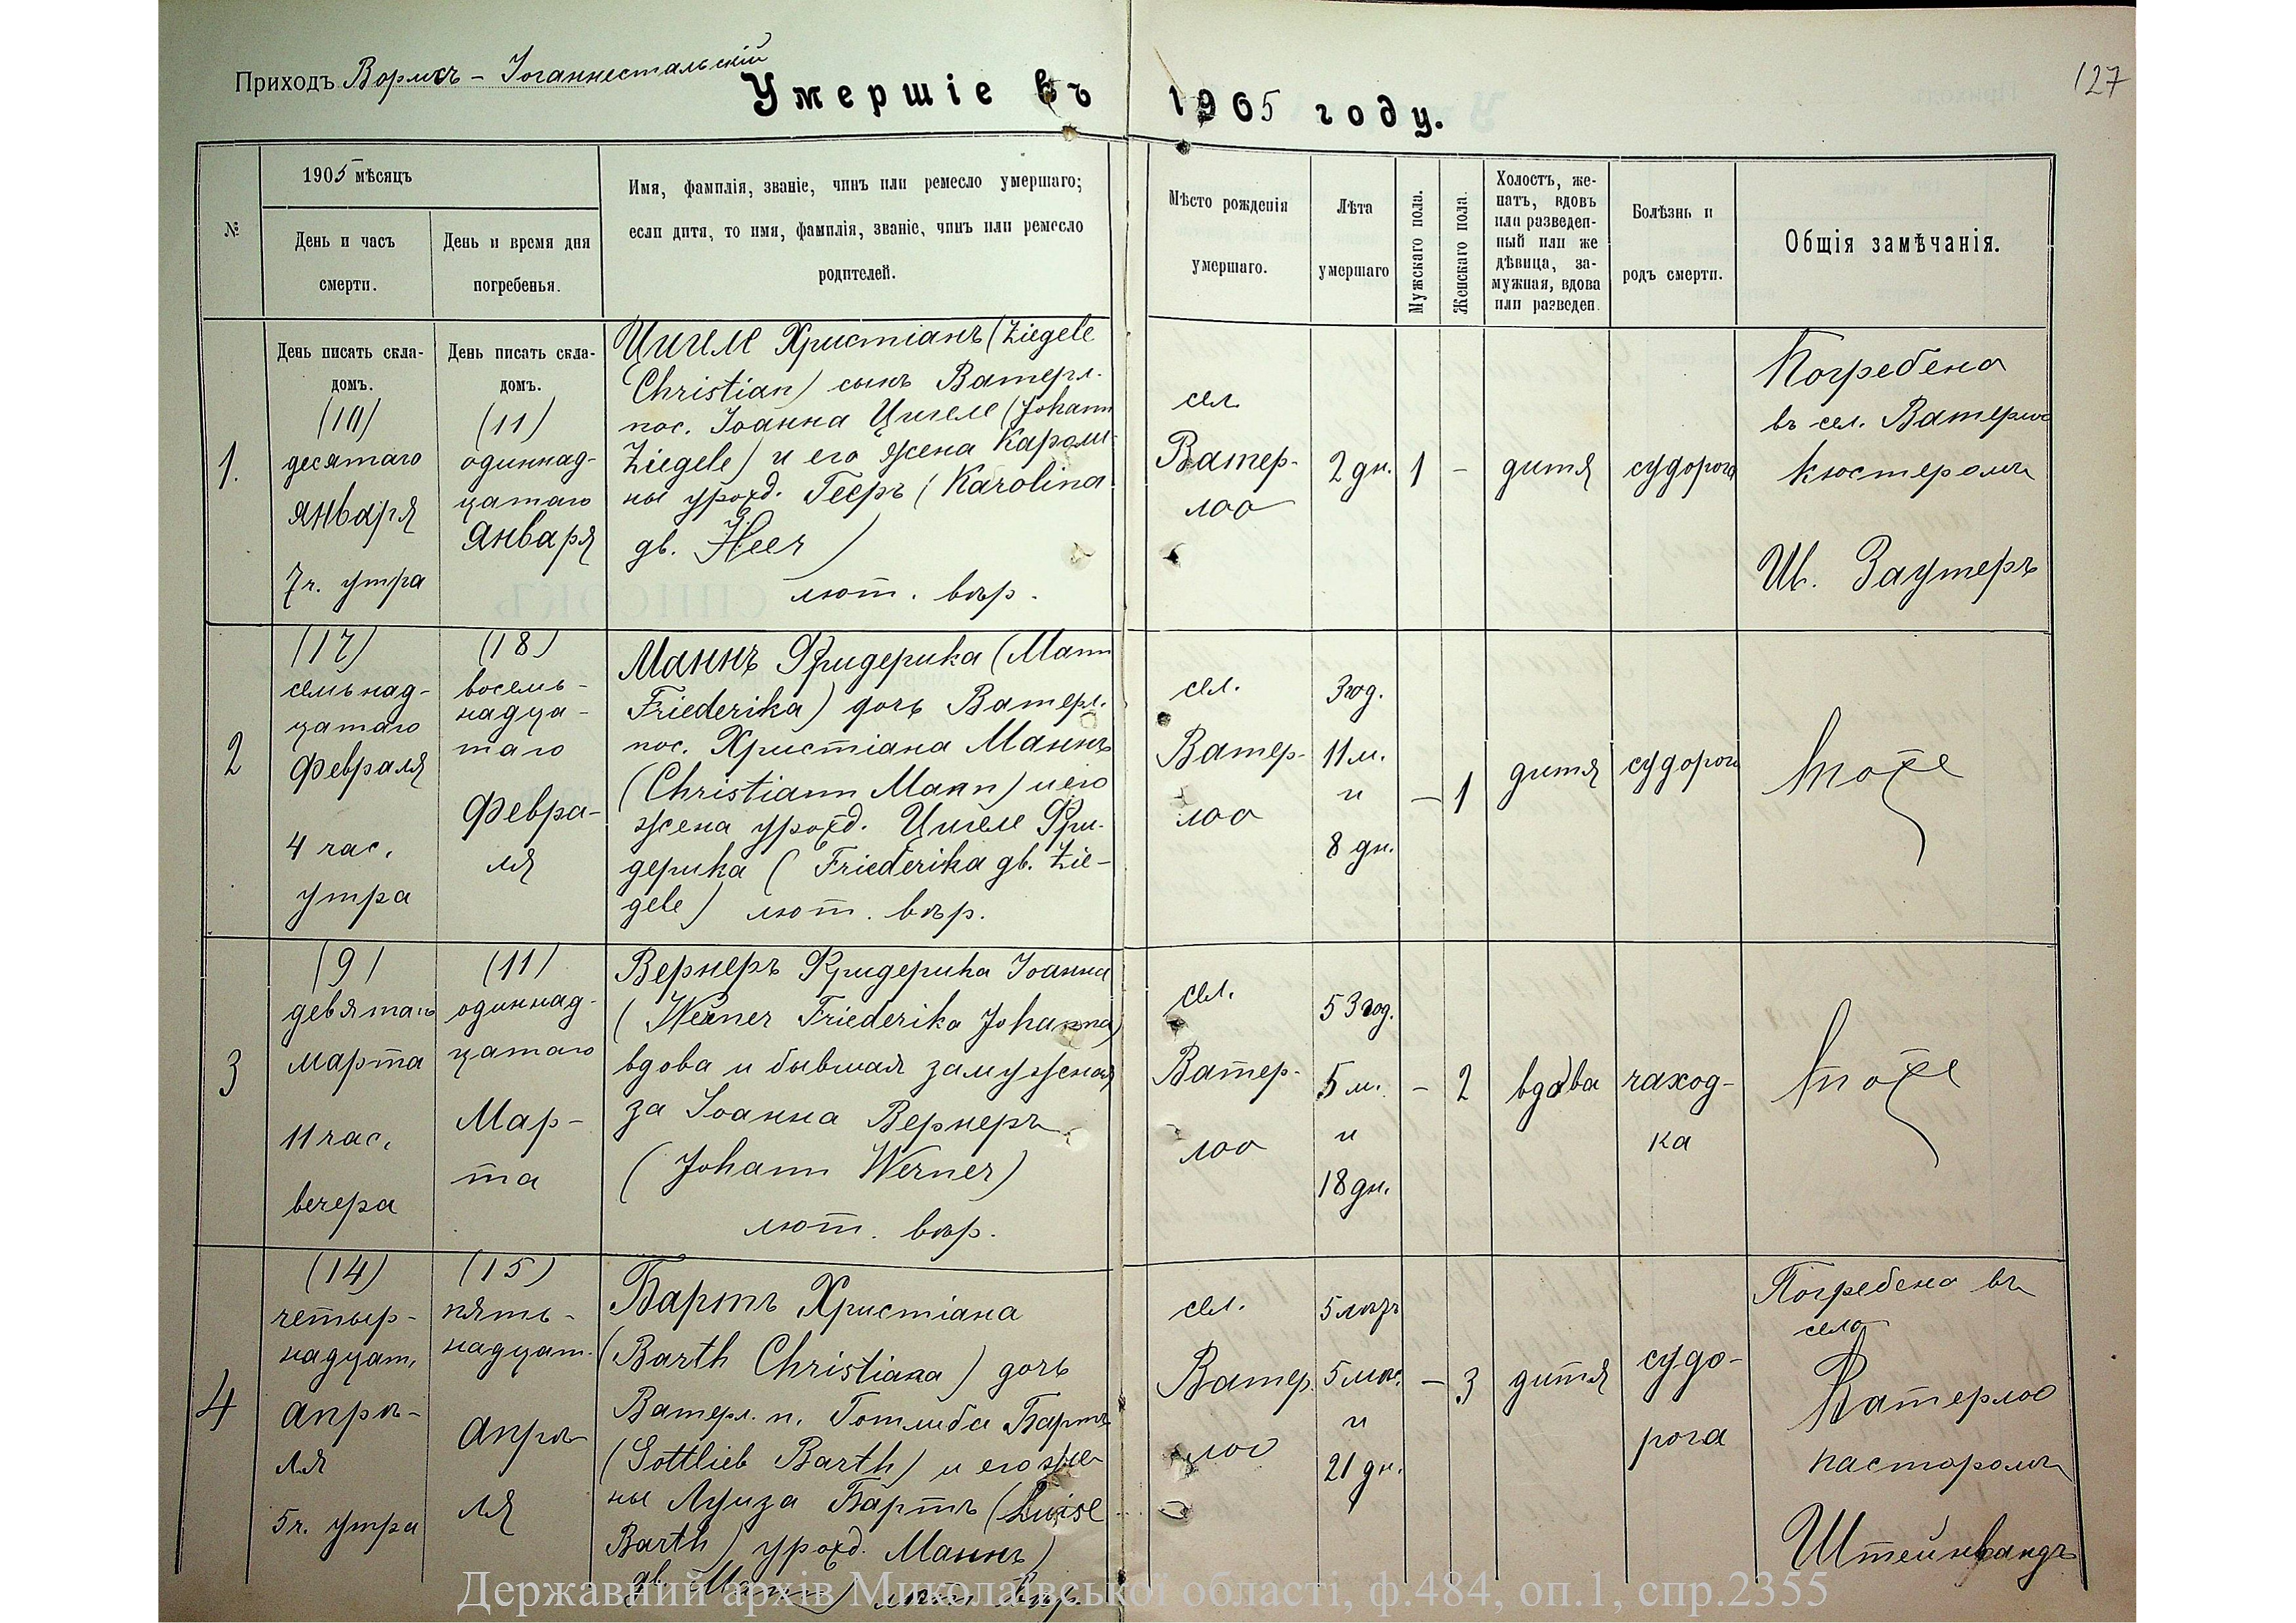 Приходъ Вормсъ - Іоганнестальскій
Умершіе въ 1905 году.
127
№
1905 мѣсяцъ
День и часъ
смерти.
День и время дня
погребенья.
Имя, фамилія, званіе, чинъ или ремесло умершаго;
если дитя, то имя, фамилія, званіе, чинъ или ремесло
родителей.
Мѣсто рожденія
умершаго.
Лѣта
умершаго
Мужскаго пола.
Женскаго пола.
Холостъ, же-
натъ, вдовъ
или разведен-
ный или же
дѣвица, за-
мужняя, вдова
или разведен.
Болѣзнь и
родъ смерти.
Общія замѣчанія.
1.
День писать скла-
домъ.
(10)
десятаго
Января
7ч. утра
День писать скла-
домъ.
(11)
одиннад-
цатаго
Января
Цигеле Христіанъ (Ziegele
Christian) сынъ Ватерл.
пос. Іоанна Цигеле (Johann
Ziegele) и его жена Кароли-
ны урожд. Гееръ (Karolina
gb. Heer)
лют. вѣр.
сел.
Ватер-
лоо
2 дн.
1
-
дитя
судорога
Погребена
въ сел. Ватерлоо
кюстеромъ
Шв. Заутеръ
2
(17)
семьнад-
цатаго
Февраля
4 час.
утра
(18)
восемь-
надца-
таго
Февра-
ля
Маннъ Фридерика (Mann
Friederika) дочь Ватерл.
пос. Христіана Маннъ
(Christiann Mann) и его
жена урожд. Цигеле Фри-
дерика (Friederika gb. Zie-
gele) лют. вѣр.
сел.
Ватер-
лоо
3 год.
11 м.
и
8 дн.
-
1
дитя
судорога
тоже
3
(9)
девятаго
Марта
11 час.
вечера
(11)
одиннад-
цатаго
Мар-
та
Вернеръ Фридерика Іоанна
(Werner Friederika Johanna)
вдова и бывшая замужная
за Іоанна Вернеръ
(Johann Werner)
лют. вѣр.
сел.
Ватер-
лоо
53 год.
5 м.
и
18 дн.
-
2
вдова
чаход-
ка
тоже
4
(14)
четыр-
надцат.
Апрѣ-
ля
5ч. утра
(15)
пять-
надцат.
Апрѣ-
ля
Бартъ Христіана
(Barth Christiana) дочь
Ватерл. п. Готлиба Бартъ
(Gottlieb Barth) и его же-
ны Луиза Бартъ (Luise
Barth) урожд. Маннъ)
gb. Mann) лют. вѣр.
сел.
Ватер.
лоо
и
21 дн.
-
3
дитя
судо-
рога
Погребена въ
село
Ватерлоо
пасторомъ
Штейнвандъ
Державний архів Миколаївської області, ф.484, оп.1, спр.2355